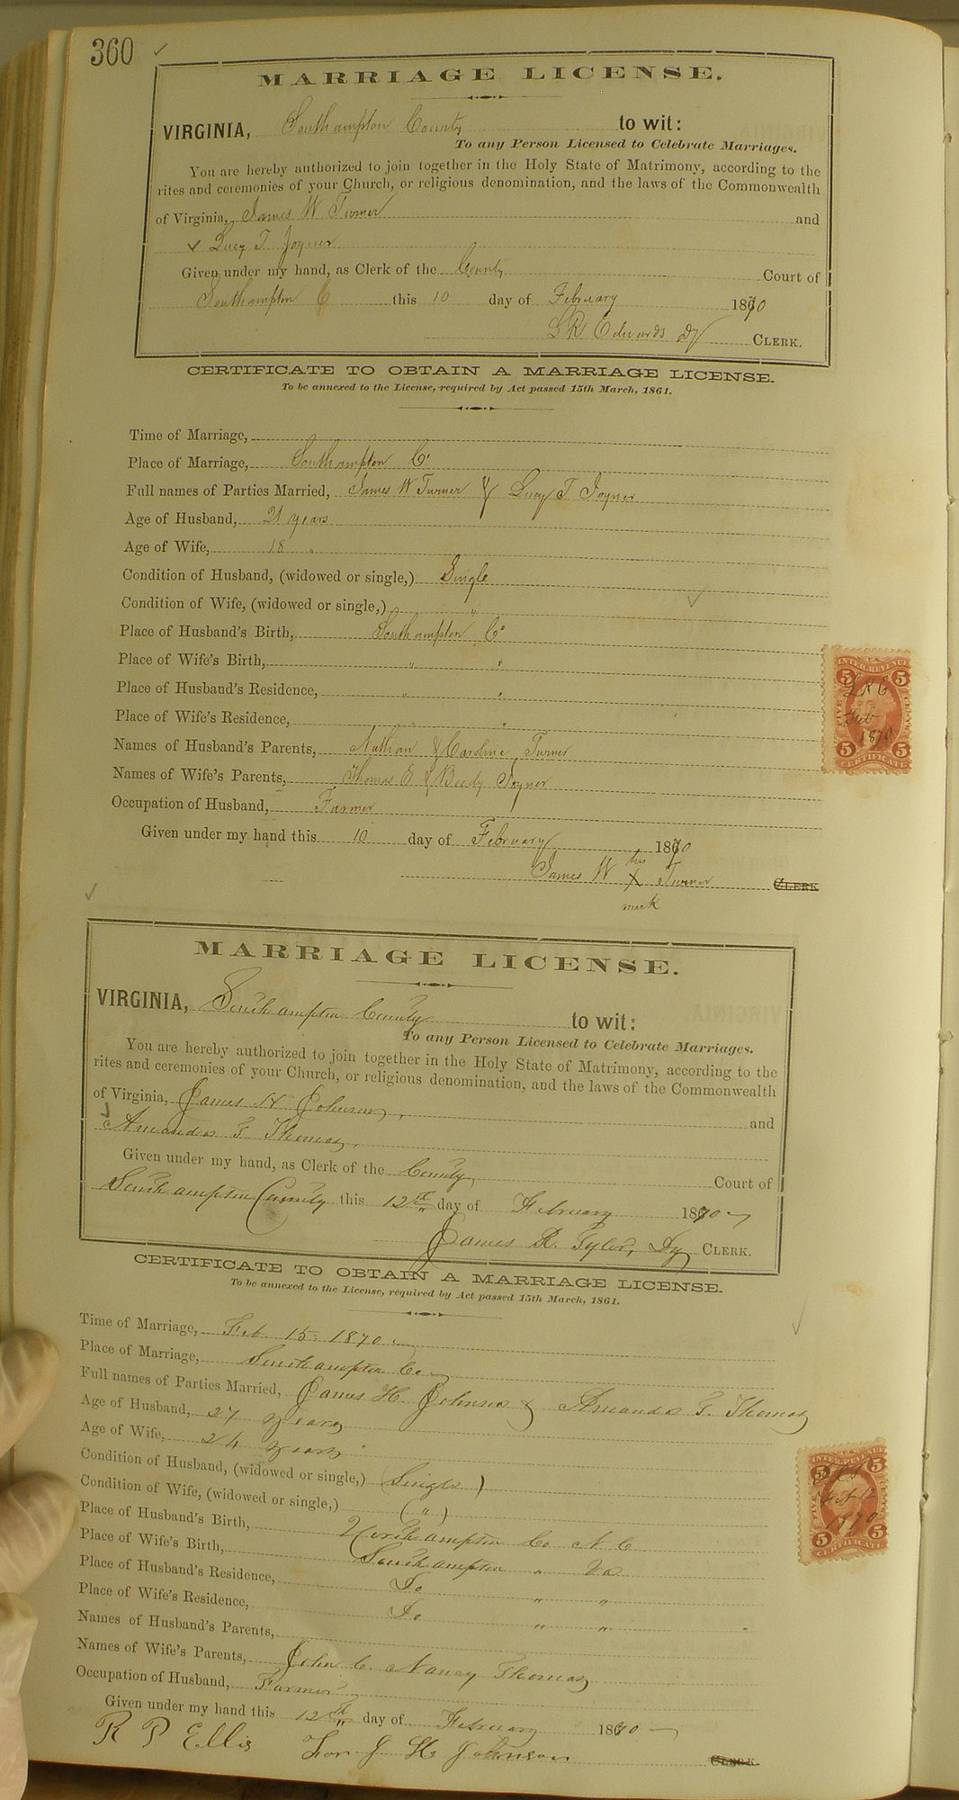 360
MARRIAGE LICENSE.
VIRGINIA, Southampton County to wit:
To any Person Licensed to Celebrate Marriages.
You are hereby authorized to join together in the Holy State of Matrimony, according to the
rites and ceremonies of your Church, or religious denomination, and the laws of the Commonwealth
of Virginia, James W Turner and
Lucy T Joyner
Given under my hand, as Clerk of the County Court of
Southampton C this 10 day of February 1870
L R Edwards Dy CLERK.
CERTIFICATE TO OBTAIN A MARRIAGE LICENSE.
To be annexed to the License, required by Act passed 15th March, 1861.
Time of Marriage,
Place of Marriage, Southampton Co
Full names of Parties Married, James W Turner & Lucy T Joyner
Age of Husband, 21 years
Age of Wife, 18 "
Condition of Husband, (widowed or single,) Single
Condition of Wife, (widowed or single,) "
Place of Husband's Birth, Southampton Co
Place of Wife's Birth, " "
Place of Husband's Residence, " "
Place of Wife's Residence, " "
Names of Husband's Parents, Nathan & Caroline Turner
Names of Wife's Parents, Thomas E & Joyner
Occupation of Husband, Farmer
Given under my hand this 10 day of February 1870
his
James W X Turner CLERK
mark
INTER. REVENUE
5 5
L R E
Feb
1870
5 5
CERTIFICATE
MARRIAGE LICENSE.
VIRGINIA, Southampton County to wit:
To any Person Licensed to Celebrate Marriages.
You are hereby authorized to join together in the Holy State of Matrimony, according to the
rites and ceremonies of your Church, or religious denomination, and the laws of the Commonwealth
of Virginia, James H Johnson, and
Amanda F Thomas,
Given under my hand, as Clerk of the County Court of
Southampton County this 12th day of February 1870
James R. Tyler, Dy CLERK.
CERTIFICATE TO OBTAIN A MARRIAGE LICENSE.
To be annexed to the License, required by Act passed 15th March, 1861.
Time of Marriage, Feb 15. 1870
Place of Marriage, Southampton Co
Full names of Parties Married, James H Johnson & Amanda F. Thomas
Age of Husband, 27 years
Age of Wife, 24 years
Condition of Husband, (widowed or single,) Single )
Condition of Wife, (widowed or single,) ( " )
Place of Husband's Birth, Northampton Co N. C
Place of Wife's Birth, Southampton " Va
Place of Husband's Residence, Do " "
Place of Wife's Residence, Do " "
Names of Husband's Parents,
Names of Wife's Parents, John C. Nancy Thomas
Occupation of Husband, Farmer
Given under my hand this 12th day of February 1870
R P Ellis For J H Johnson CLERK
INTER. REVENUE
5 5
1870
5 5
CERTIFICATE